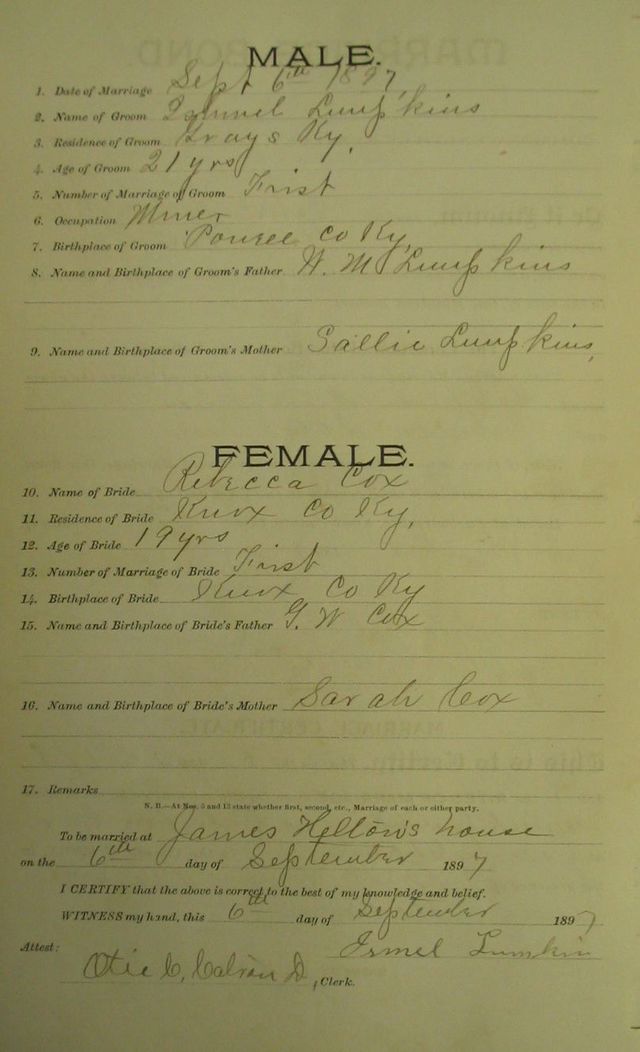 MALE.
1. Date of Marriage Sept 6th 1897,
2. Name of Groom Lumpkins
3. Residence of Groom Grays Ky,
4. Age of Groom 21 yrs
5. Number of Marriage of Groom First
6. Occupation Miner
7. Birthplace of Groom Co Ky,
8. Name and Birthplace of Groom's Father W. M Lumpkins
9. Name and Birthplace of Groom's Mother Sallie Lumpkins,
FEMALE.
10. Name of Bride Rebecca Cox
11. Residence of Bride Knox Co Ky,
12. Age of Bride 19 yrs
13. Number of Marriage of Bride First
14. Birthplace of Bride Knox Co Ky
15. Name and Birthplace of Bride's Father G. W Cox
16. Name and Birthplace of Bride's Mother Sarah Cox
17. Remarks
N. B.—At Nos. 5 and 13 state whether first, second, etc., Marriage of each or either party.
To be married at James Helton's house
on the 6th day of September 1897
I CERTIFY that the above is correct to the best of my knowledge and belief.
WITNESS my hand, this 6th day of September 1897
Lumkin
Attest:
, Clerk.